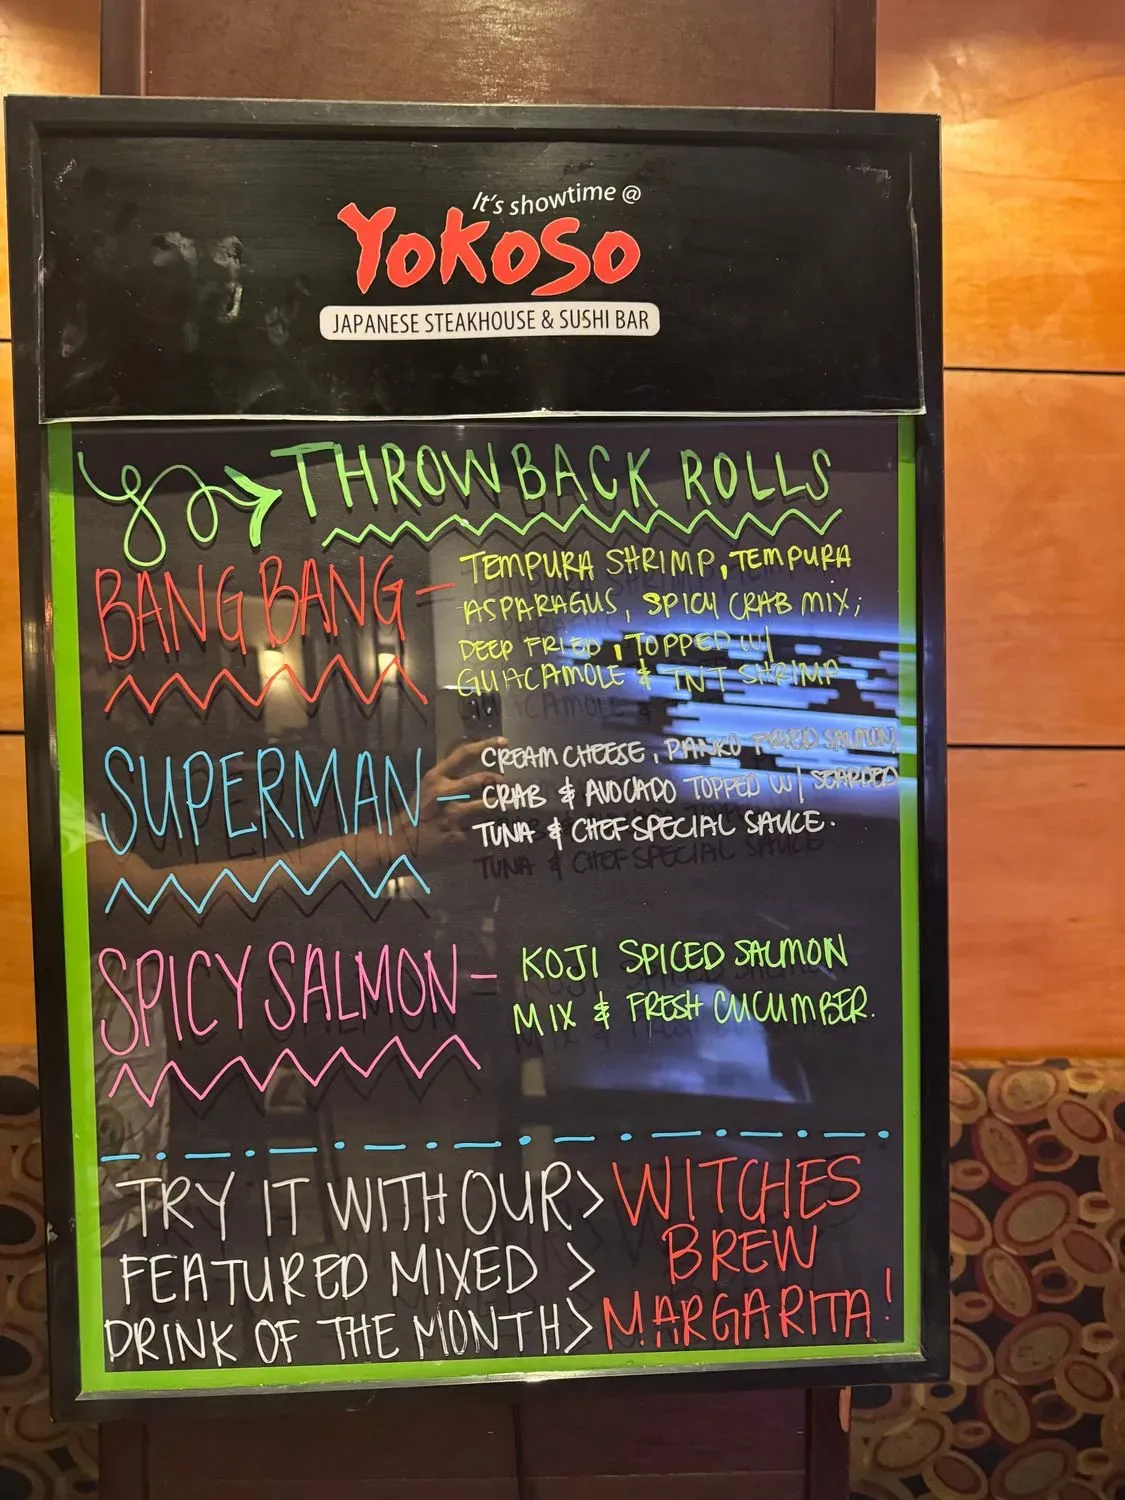 It's showtime @
YOKOSO
JAPANESE STEAKHOUSE & SUSHI BAR
THROWBACK ROLLS
BANG BANG - TEMPURA SHRIMP, TEMPURA
ASPARAGUS, SPICY CRAB MIX;
DEEP FRIED, TOPPED W/
GUACAMOLE & TNT SHRIMP
SUPERMAN - CREAM CHEESE, PANKO FRIED SALMON,
CRAB & AVOCADO TOPPED W/ SEARED
TUNA & CHEF SPECIAL SAUCE.
SPICY SALMON - KOJI SPICED SALMON
MIX & FRESH CUCUMBER.
TRY IT WITH OUR > WITCHES
FEATURED MIXED > BREW
DRINK OF THE MONTH > MARGARITA!